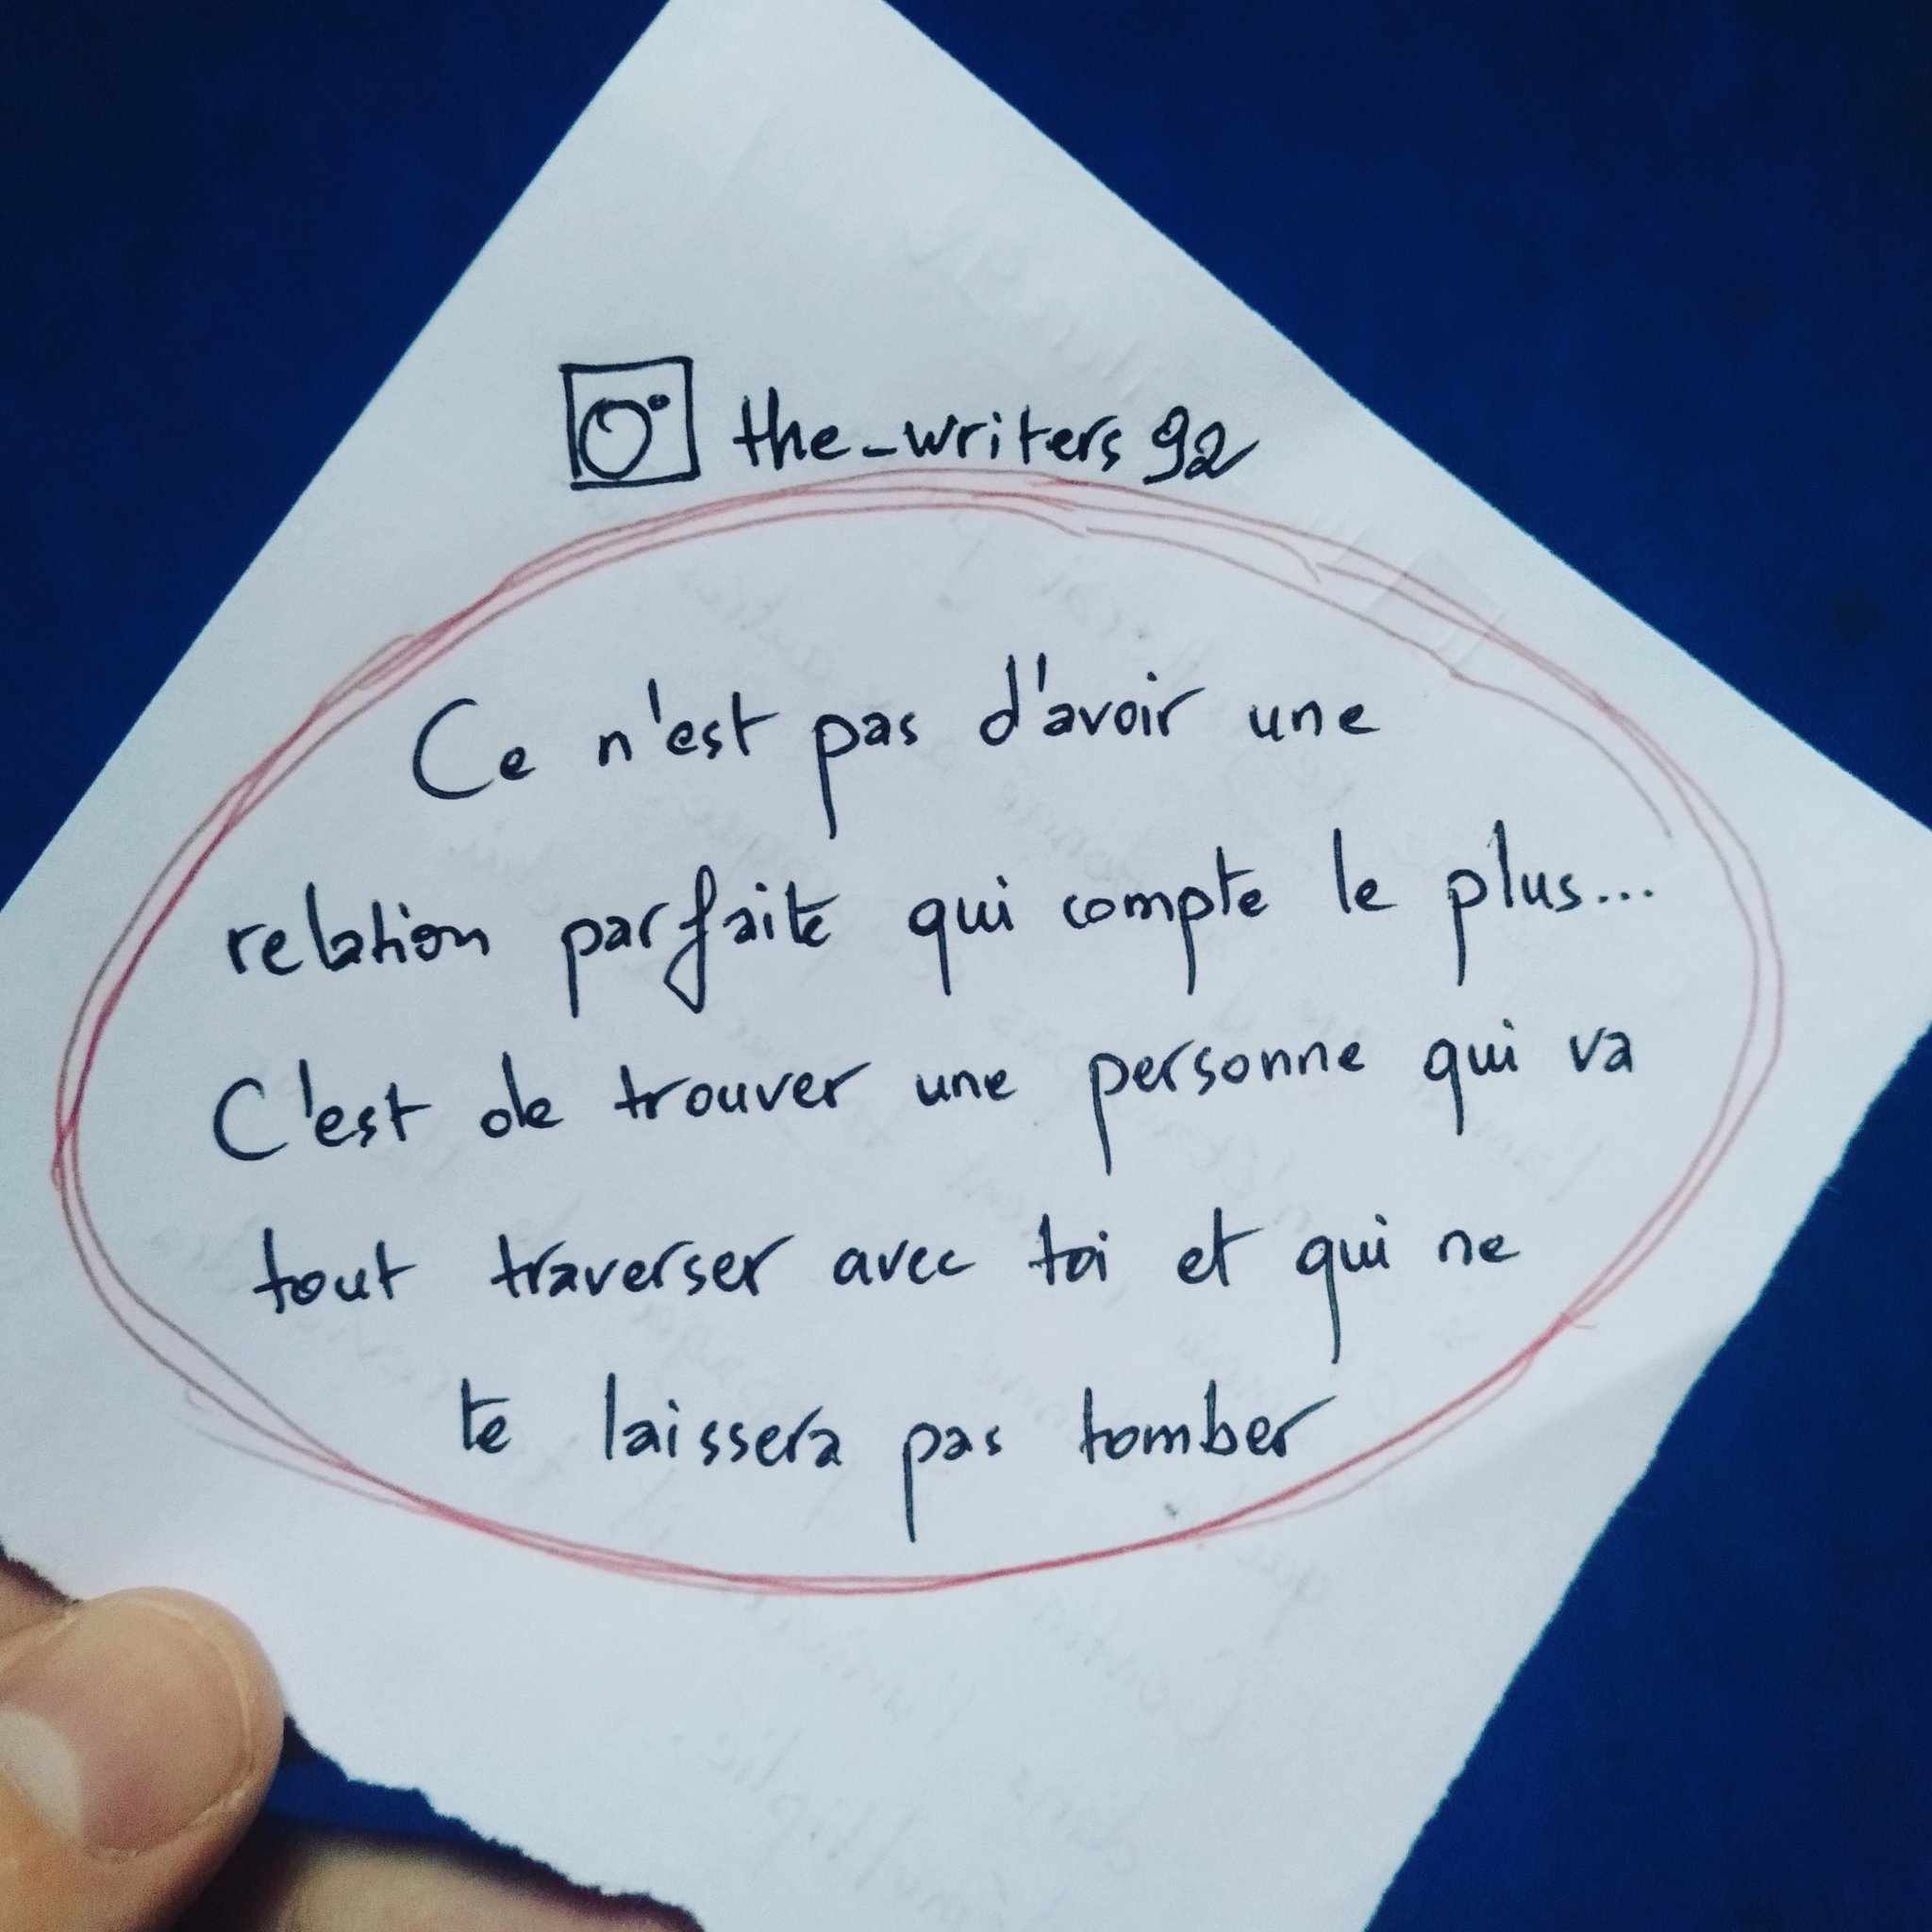 the_writers92
Ce n'est pas d'avoir une
relation parfaite qui compte le plus...
C'est de trouver une personne qui va
tout traverser avec toi et qui ne
te laissera pas tomber